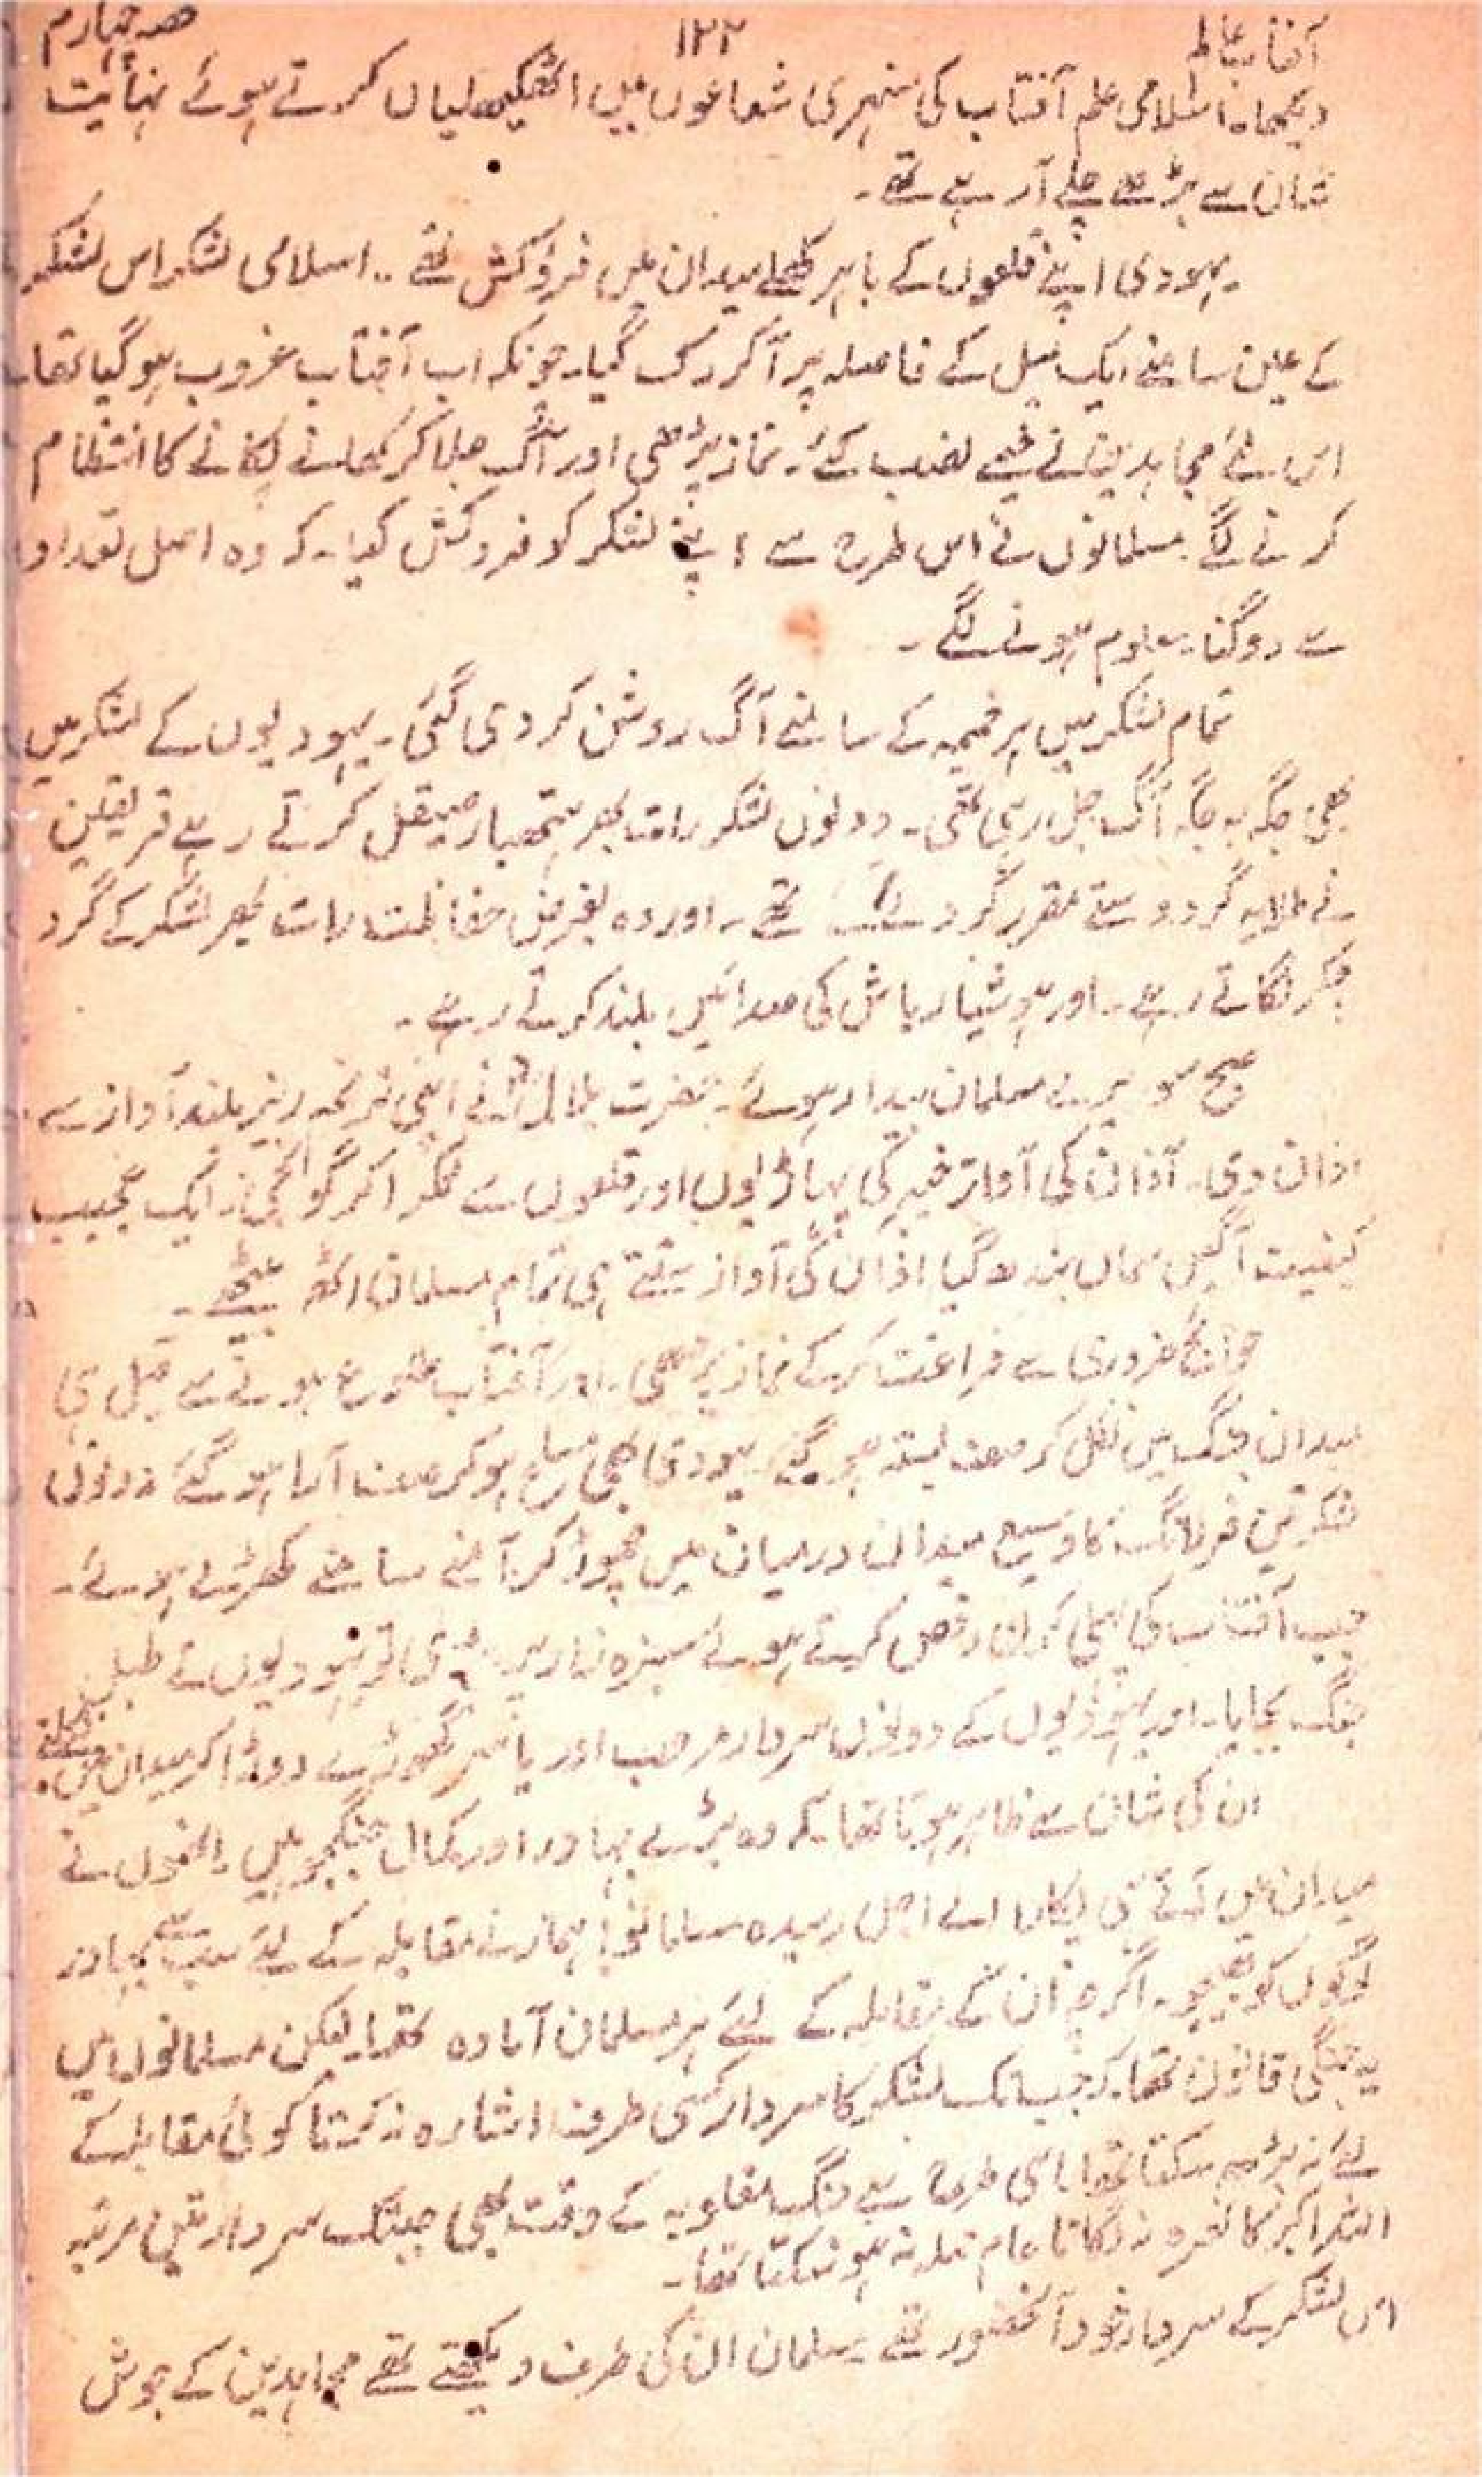 آفتاب عالم ۱۲۲ حصہ چہارم
دیکھا۔ اسلامی علم آفتاب کی سنہری شعاعوں میں اٹھکھیلیاں کرتے ہوئے نہایت
شان سے بڑھے چلے آ رہے تھے۔
یہودی اپنے قلعوں کے باہر کھلے میدان میں فروکش تھے۔ اسلامی لشکر اس لشکر
کے عین سامنے ایک میل کے فاصلہ پر آ کر رک گیا۔ چونکہ اب آفتاب غروب ہو گیا تھا۔
اس لئے مجاہدین نے خیمے نصب کئے۔ نماز پڑھی اور آگ جلا کر کھانے پکانے کا انتظام
کرنے لگے۔ مسلمانوں نے اس طرح سے اپنے لشکر کو فروکش کیا۔ کہ وہ اصل تعداد
سے دوگنا معلوم ہونے لگے۔
تمام لشکر میں ہر خیمہ کے سامنے آگ روشن کر دی گئی۔ یہودیوں کے لشکر میں
بھی جگہ بہ جگہ آگ جل رہی تھی۔ دونوں لشکر رات بھر ہتھیار صیقل کرتے رہے فریقین
نے طلایہ گرد دستے مقرر کر دئے تھے۔ اور وہ بغرض حفاظت رات بھر لشکر کے گرد
چکر لگاتے رہے۔ اور ہوشیار باش کی صدائیں بلند کرتے رہے۔
صبح سویرے مسلمان بیدار ہوئے۔ حضرت بلالؓ نے اپنی ترنم ریز بلند آواز سے
اذان دی۔ آذان کی آواز خیبر کی پہاڑیوں اور قلعوں سے ٹکرا کر گونجی۔ ایک عجیب
کیفیت آگیں سماں بندھ گیا اذان کی آواز سنتے ہی تمام مسلمان اٹھ بیٹھے۔
حوائج ضروری سے فراغت کر کے نماز پڑھی۔ اور آفتاب طلوع ہونے سے قبل ہی
میدان جنگ میں نکل کر صف بستہ ہو گئے۔ یہودی بھی مسلح ہو کر صف آرا ہو گئے۔ دونوں
لشکر تین فرلانگ کا وسیع میدان درمیان میں چھوڑ کر آمنے سامنے کھڑے ہوئے۔
جب آفتاب کی پہلی کرن رقص کرتے ہوئے سبزہ زار پر پڑی تو یہودیوں نے طبل
جنگ بجایا۔ اور یہودیوں کے دونوں سردار مرحب اور یاسر گھوڑے دوڑا کر میدان میں نکلے
ان کی شان سے ظاہر ہوتا تھا۔ کہ وہ بڑے بہادر اور کمال جنگجو ہیں۔ انھوں نے
میدان میں آتے ہی پکارا اے اجل رسیدہ مسلمانو! ہمارے مقابلہ کے لئے سب سے بہادر
لوگوں کو بھیجو۔ اگرچہ ان کے مقابلہ کے لئے ہر مسلمان آمادہ تھا۔ لیکن مسلمانوں میں
یہ جنگی قانون تھا۔ کہ جب تک لشکر کا سردار کسی طرف اشارہ نہ کرتا کوئی مقابلہ کے
لئے نہ بڑھ سکتا تھا۔ اسی طرح سے جنگ مغلوبہ کے وقت بھی جبتک سردار تین مرتبہ
اللہ اکبر کا نعرہ نہ لگاتا عام حملہ نہ ہو سکتا تھا۔
اس لشکر کے سردار خود آنحضور تھے۔ مسلمان ان کی طرف دیکھتے تھے مجاہدین کے جوش